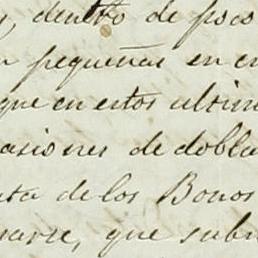 , dentro de poco
pequeñas en
que en estos ultim
asiones de dobla
ta de los Bonos
narse, que subi